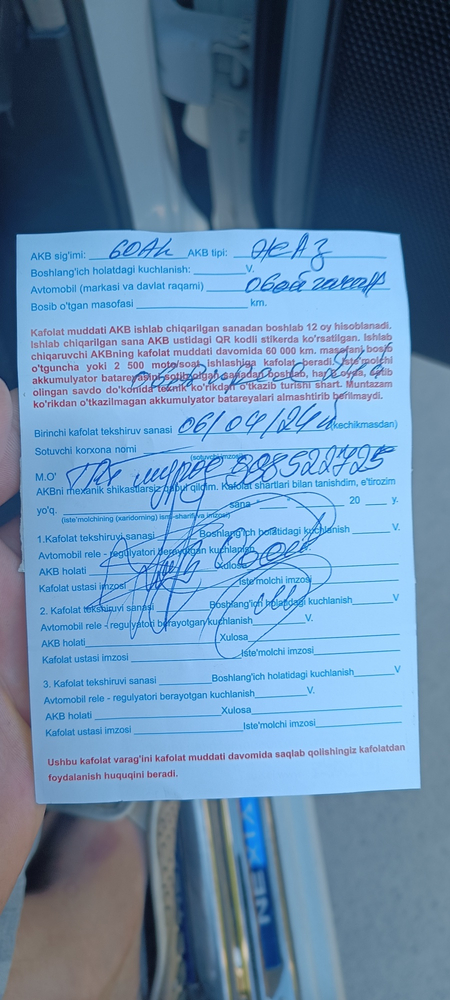 AKB sig'imi: 60Ah AKB tipi:
Boshlang'ich holatdagi kuchlanish: V.
Avtomobil (markasi va davlat raqami)
Bosib o'tgan masofasi km.
Kafolat muddati AKB ishlab chiqarilgan sanadan boshlab 12 oy hisoblanadi.
Ishlab chiqarilgan sana AKB ustidagi QR kodli stikerda ko'rsatilgan. Ishlab
chiqaruvchi AKBning kafolat muddati davomida 60 000 km. masofani bosib
o'tguncha yoki 2 500 moto/soat ishlashiga kafolat beradi. Iste'molchi
akkumulyator batareyasini sotib olgan sanadan boshlab, har oyda, sotib
olingan savdo do'konida texnik ko'rikdan o'tkazib turishi shart. Muntazam
ko'rikdan o'tkazilmagan akkumulyator batareyalari almashtirib berilmaydi.
Birinchi kafolat tekshiruv sanasi 06/04/24 (kechikmasdan)
Sotuvchi korxona nomi
(sotuvchi imzosi)
M.O' 908522725
AKBni mexanik shikastlarsiz qabul qildim. Kafolat shartlari bilan tanishdim, e'tirozim
yo'q. sana 20 y.
(iste'molchining (xaridorning) ismi-sharifi va imzosi)
1.Kafolat tekshiruvi sanasi Boshlang'ich holatidagi kuchlanish V.
Avtomobil rele - regulyatori berayotgan kuchlanish
AKB holati Xulosa
Kafolat ustasi imzosi Iste'molchi imzosi
2. Kafolat tekshiruvi sanasi Boshlang'ich holatidagi kuchlanish V
Avtomobil rele - regulyatori berayotgan kuchlanish V.
AKB holati Xulosa
Kafolat ustasi imzosi Iste'molchi imzosi
3. Kafolat tekshiruvi sanasi Boshlang'ich holatidagi kuchlanish V
Avtomobil rele - regulyatori berayotgan kuchlanish V.
AKB holati Xulosa
Kafolat ustasi imzosi Iste'molchi imzosi
Ushbu kafolat varag'ini kafolat muddati davomida saqlab qolishingiz kafolatdan
foydalanish huquqini beradi.
NEXIA